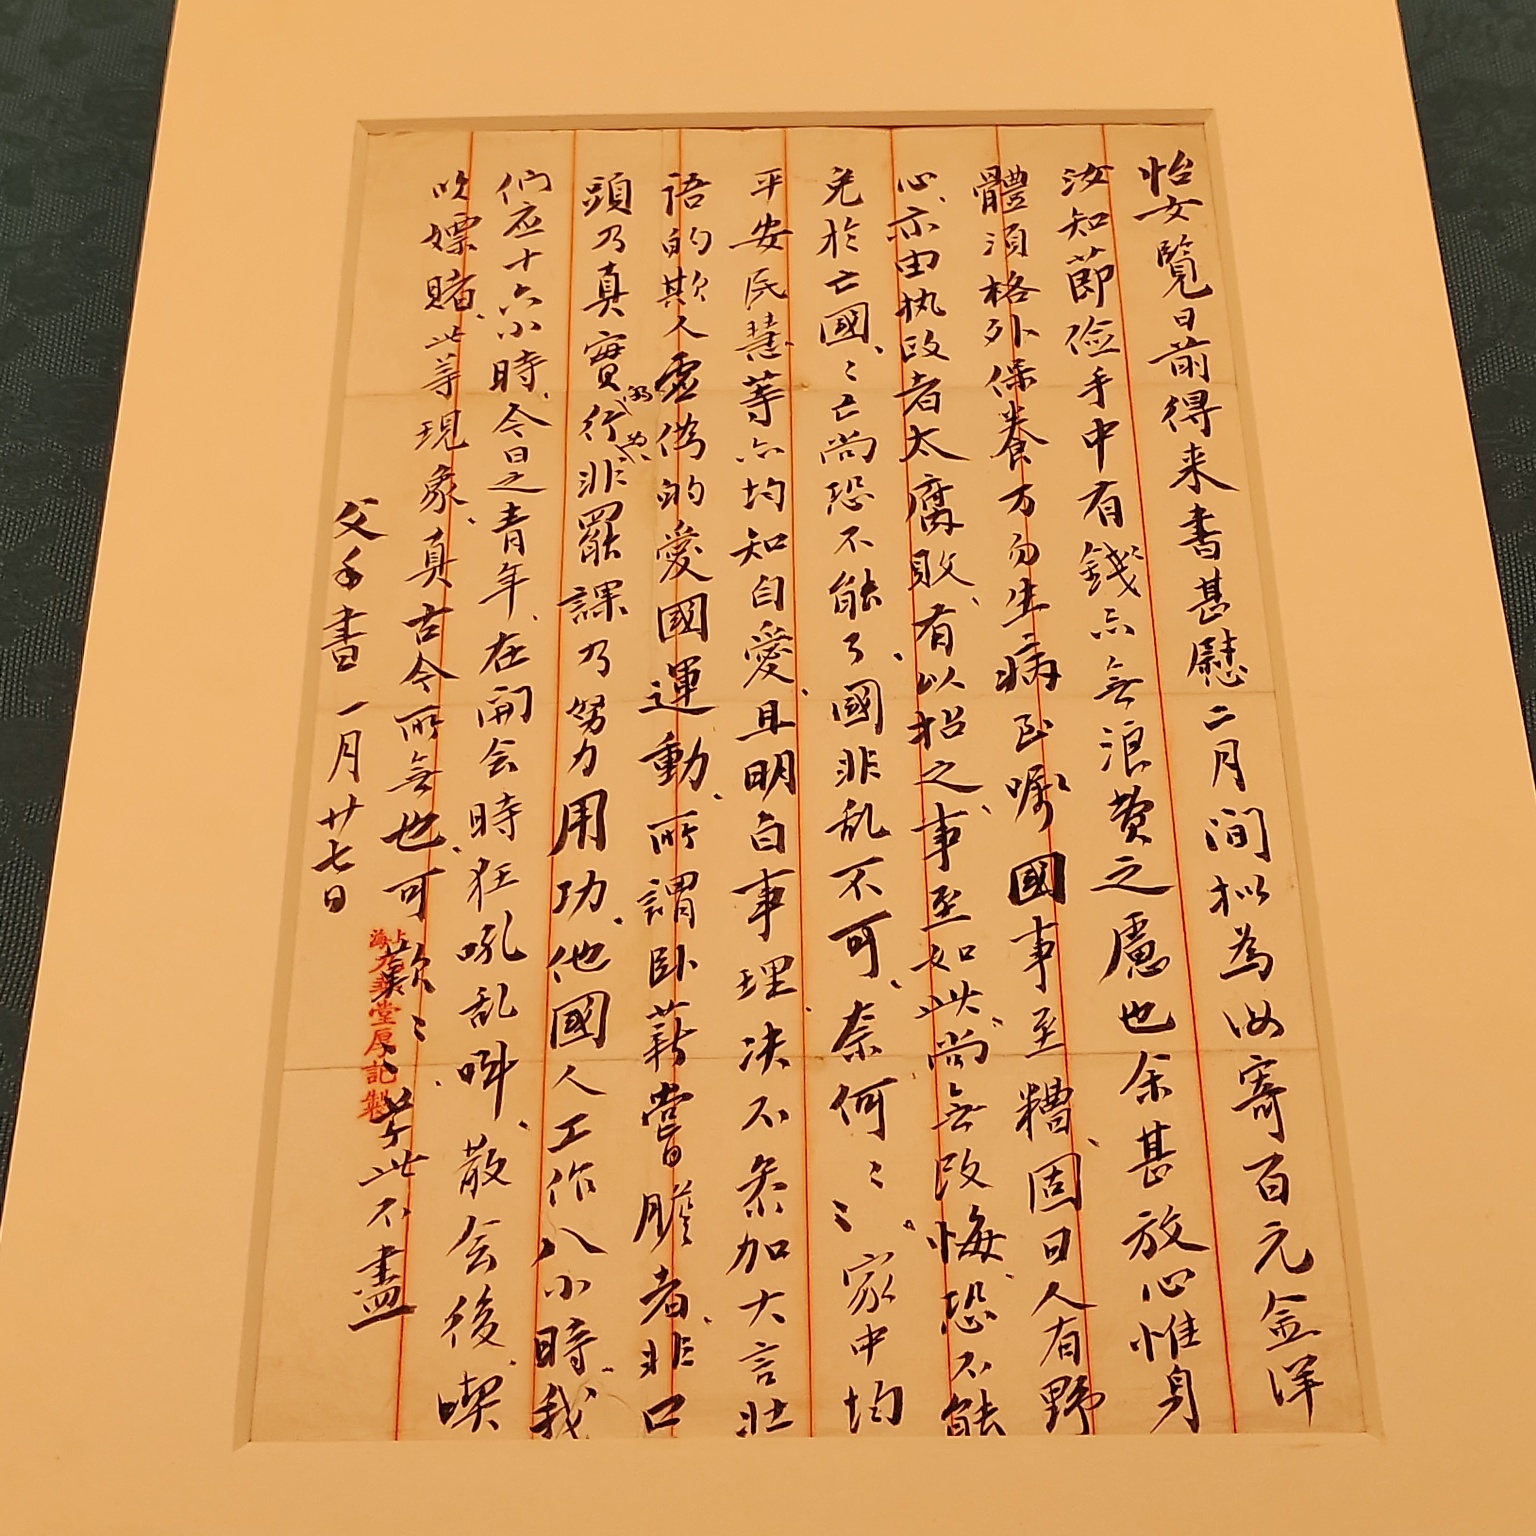 怡女覽日前得来書甚慰二月间拟為汝寄百元金洋
汝知節儉手中有錢亦無浪费之慮也余甚放心惟身
體須格外保养万勿生病至嘱國事至糟、固日人有野
心、亦由执政者太腐敗、有以招之、事至如此、尚無改悔、恐不能
免於亡國、〻亡尚恐不能了、國非乱不可、奈何〻〻。家中均
平安民慧等亦均知自愛、且明白事理、决不参加大言壮
语的欺人虚偽的愛國運動、所謂卧薪嘗膽者、非口
頭乃真實行、非罷課乃努力用功、他國人工作八小時、我
们应十六小時、今日之青年、在開会時狂吼乱叫、散会後、喫
吹嫖賭、此等現象、真古今所無也、可歎〻〻、草此不盡
父手書 一月廿七日
上海九華堂厚記製